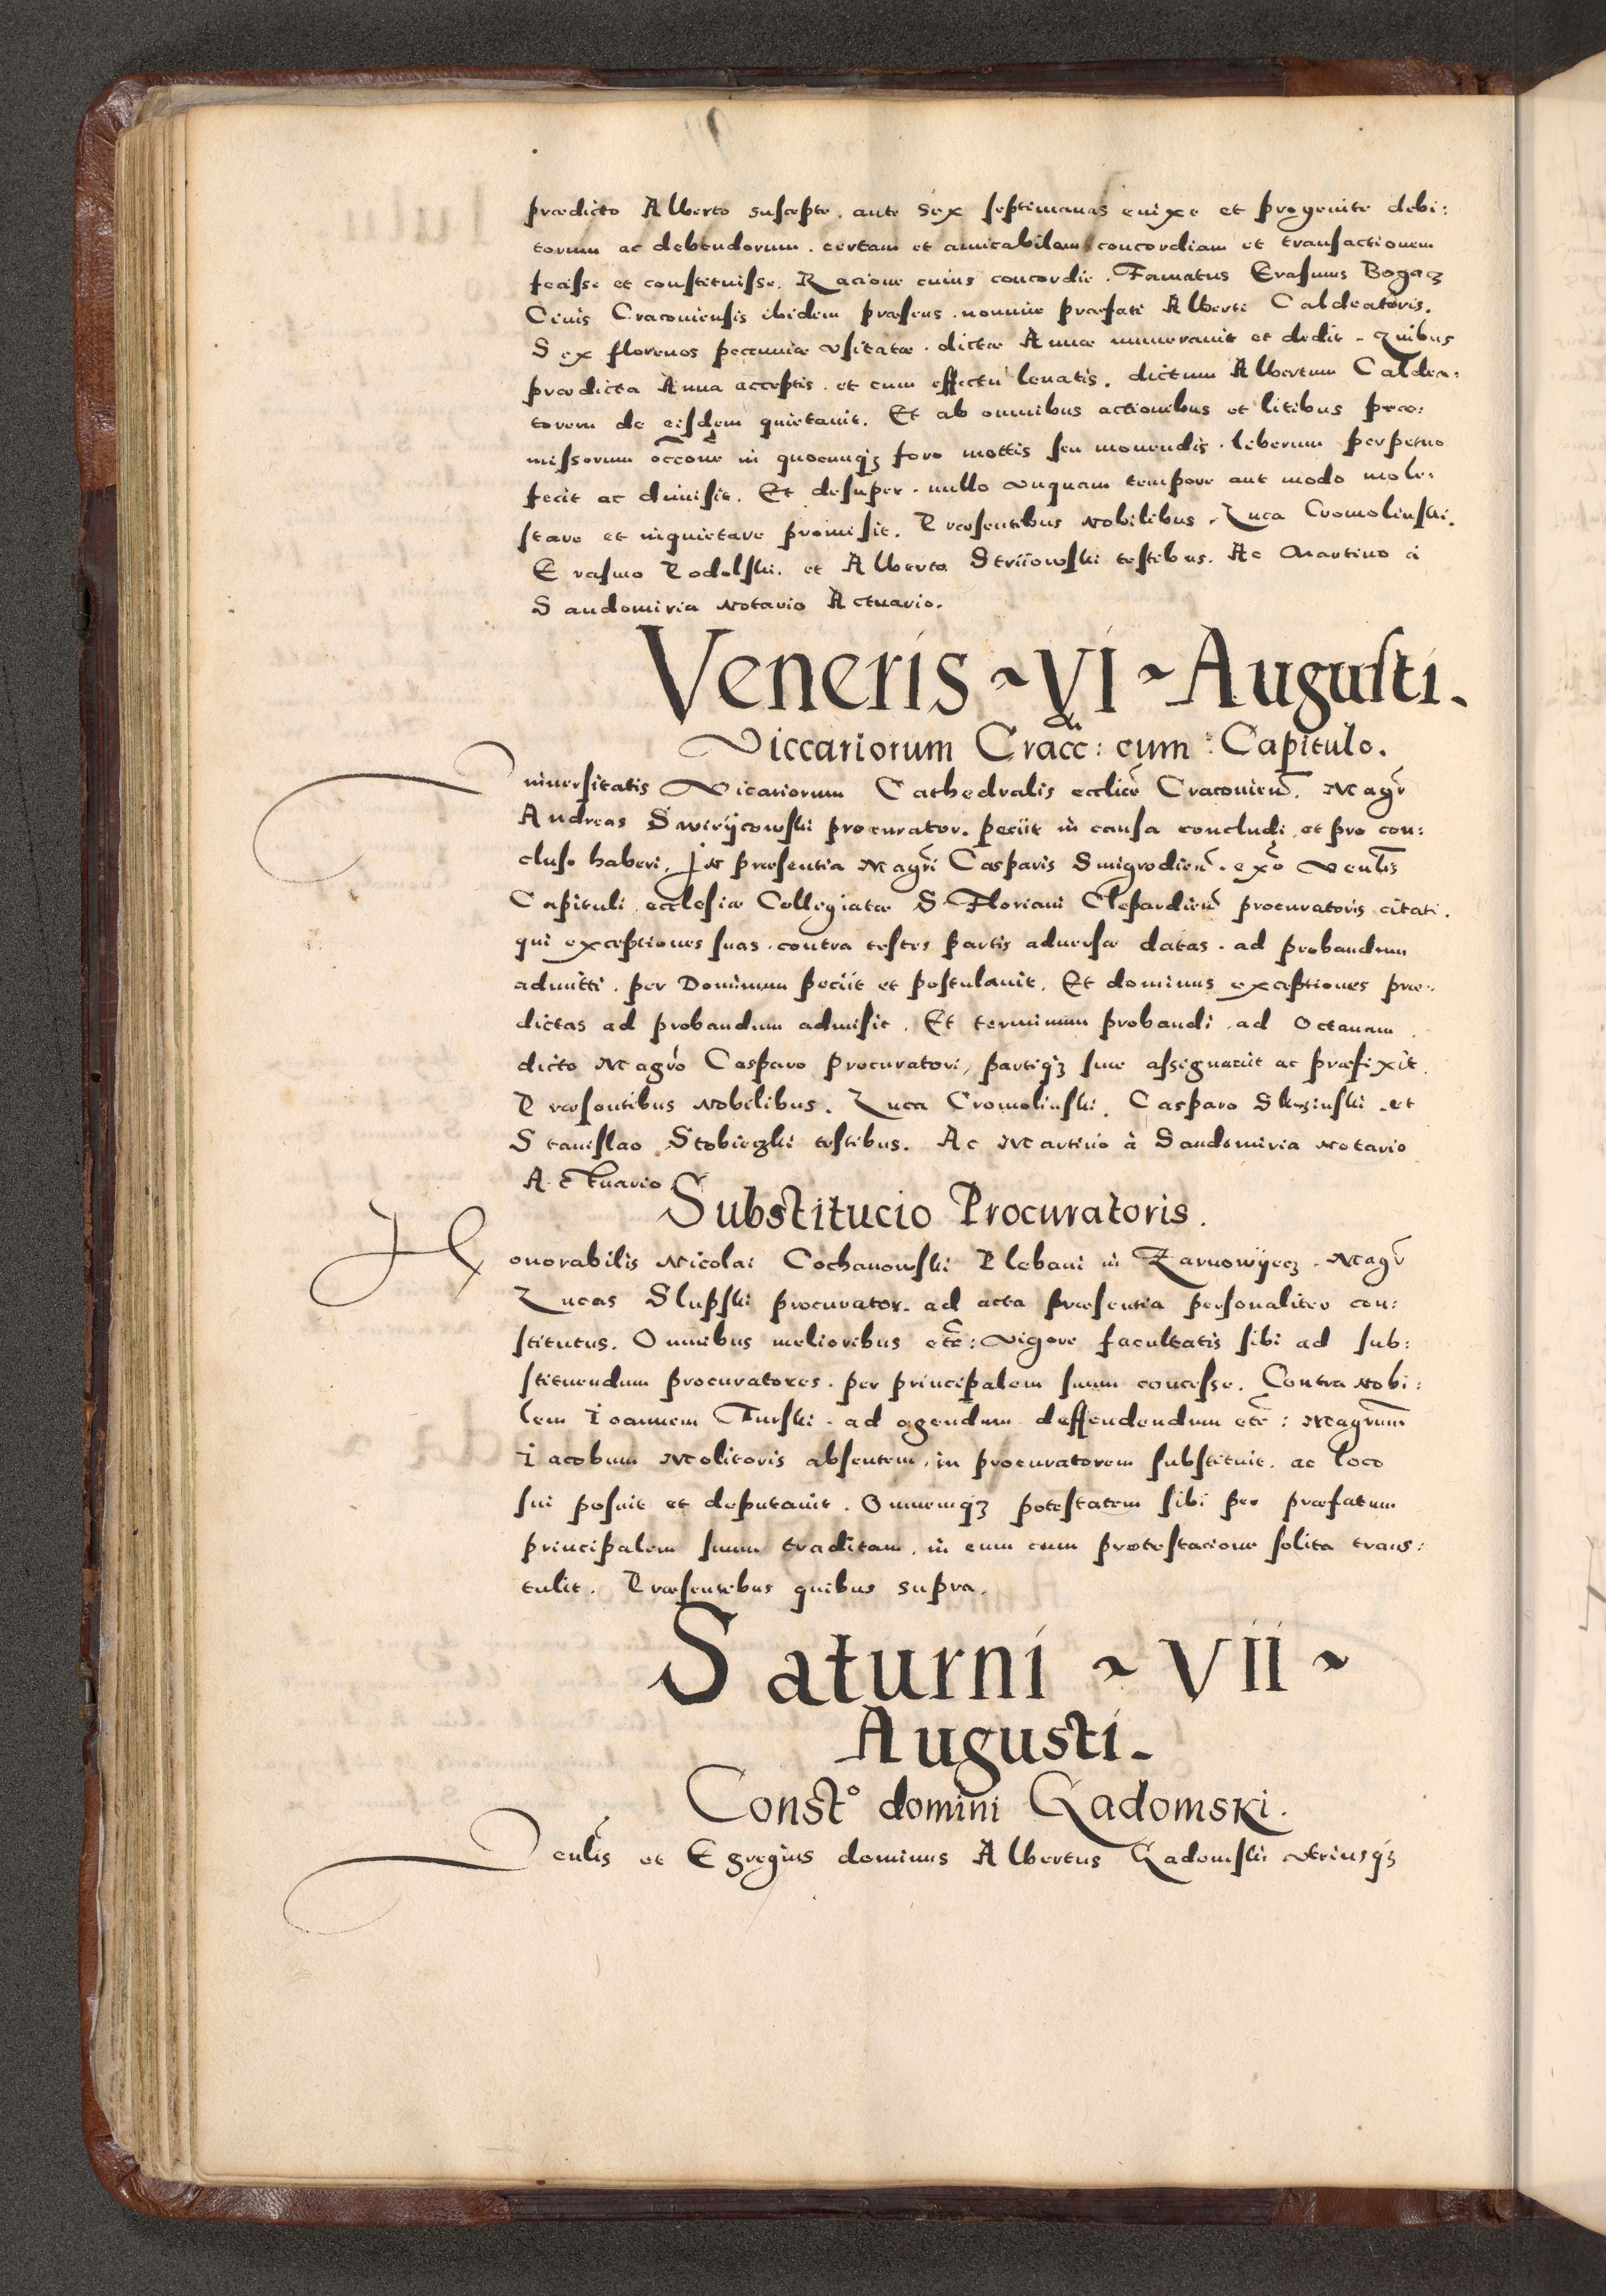 prædicto Alberto suscepte. ante Sex septimanas enixe et progenite debi:
torum ac debendorum. certam et amicabilem concordiam et transactionem
fecisse et constituisse. Racione cuius concordie. Famatus Erasmus Bogacz
Ciuis Cracouiensis ibidem præsens. nomine præfati Alberti Caldeatoris.
Sex florenos pecuniæ vsitatæ. dictæ Annæ numerauit et dedit. Quibus
prædicta Anna acceptis. et cum effectu leuatis. dictum Albertum Caldea:
torem de eisdem quietauit. Et ab omnibus actionibus et litibus præ:
missorum occõne in quocunqz foro mottis seu mouendis. liberum perpetuo
fecit ac dimisit. Et desuper. nullo vnquam tempore aut modo mole:
stare et inquietare promisit. Præsentibus Nobilibus. Luca Cromolinski.
Erasmo Podolski. et Alberto Striiowski testibus. Ac Martino à
Sandomiria Notario Actuario.
Veneris ~ VI ~ Augusti.
Viccariorum Cracc: cum Capitulo.
Vniuersitatis Vicariorum Cathedralis eccliæ Cracouien. Magr
Andreas Swirÿcowski procurator. peciit in causa concludi et pro con:
cluso haberi. In præsentia Magri Casparis Smigrodien. ex Venlis
Capituli ecclesiæ Collegiatæ S. Floriani Clepardien procuratoris citati.
qui exceptiones suas. contra testes partis aduersæ datas. ad probandum
admitti. per Dominum peciit et postulauit. Et dominus exceptiones præ:
dictas ad probandum admisit. Et terminum probandi ad Octauam
dicto Magro Casparo procuratori, partiqz suæ assignauit ac præfixit.
Præsentibus Nobilibus. Luca Cromolinski. Casparo et
Stanislao Stobieczki testibus. Ac Martino à Sandomiria Notario
Actuario
Substitucio Procuratoris.
Honorabilis Nicolai Cochanowski Plebani in Zarnowÿecz. Magr
Lucas Slupski procurator. ad acta præsentia personaliter con:
stitutus. Omnibus melioribus etc: vigore facultatis sibi ad sub:
stituendum procuratores. per principalem suum concesse. Contra Nobi:
lem Ioannem Turski. ad agendum deffendendum etc: Magrum
Iacobum Molitoris absentem, in procuratorem substituit. ac loco
sui posuit et deputauit. Omnemqz potestatem sibi per præfatum
principalem suum traditam. in eum cum protestacione solita trans:
tulit. Præsentibus quibus supra.
Saturni ~ VII ~
Augusti.
Const° domini Gadomski.
Venlis et Egregius dominus Albertus Gadomski vtriusqz